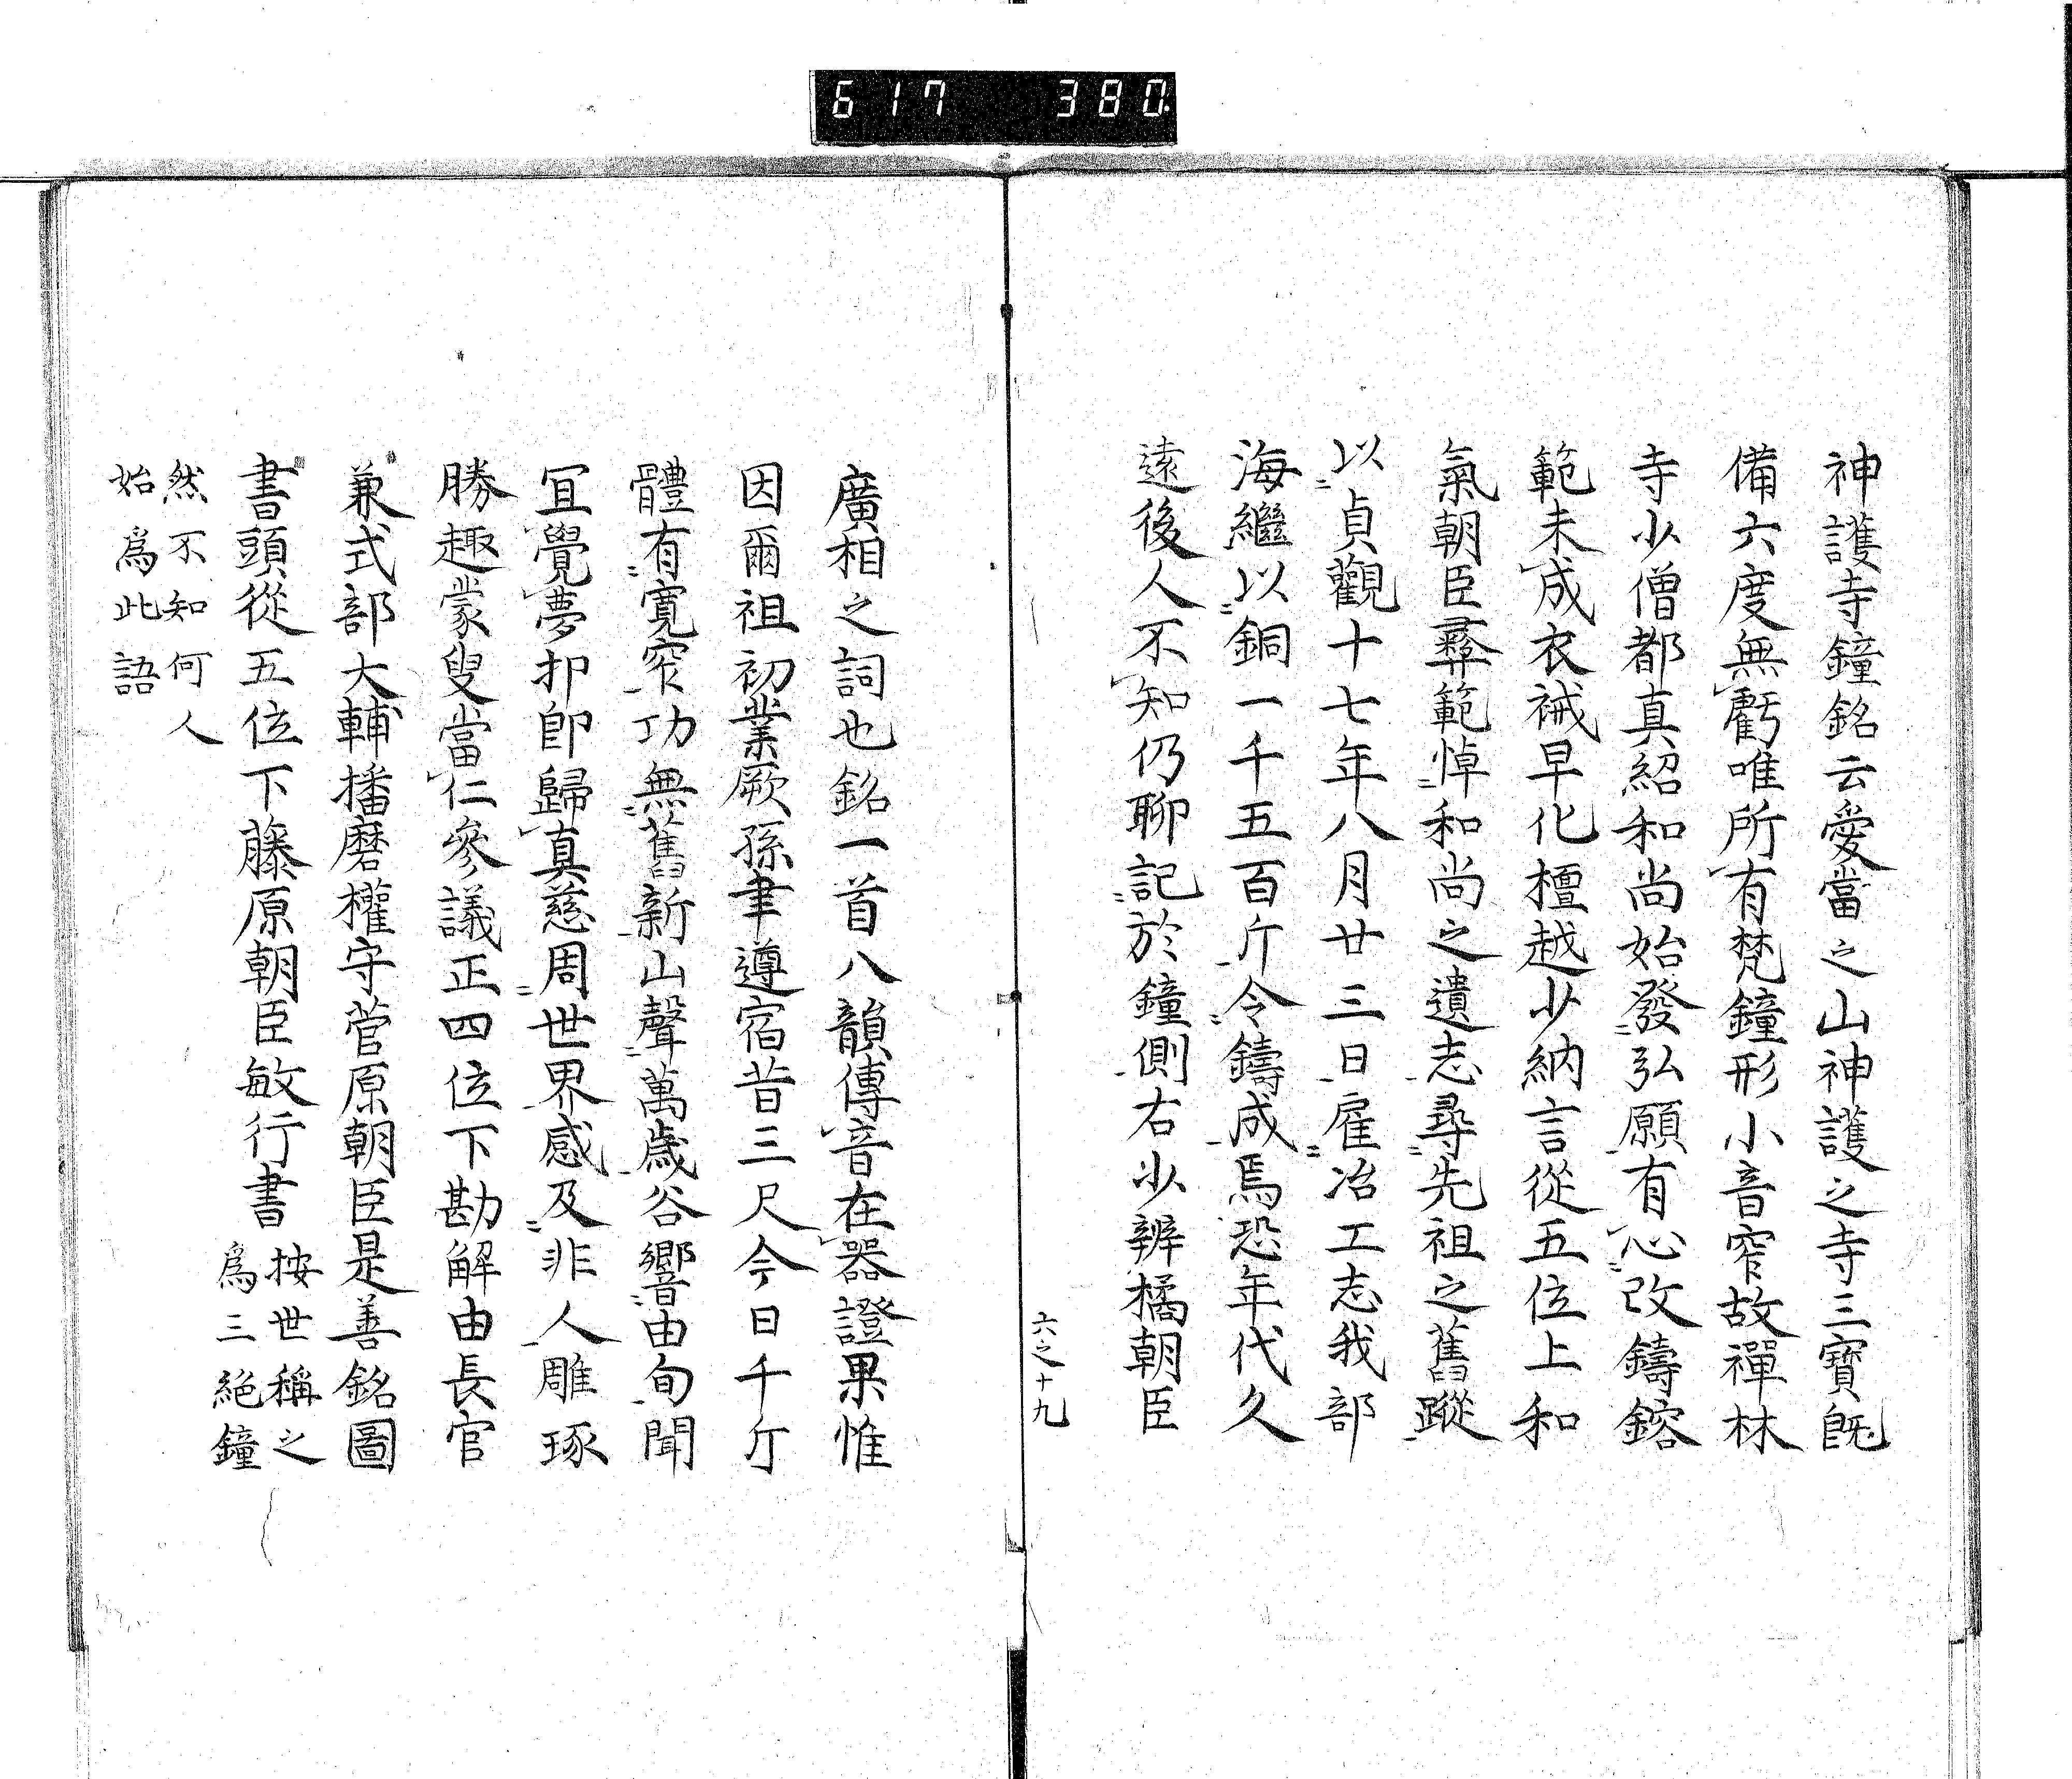 617 380
神護寺鐘銘云愛當之山神護之寺三寶既
備六度無虧唯所有梵鐘形小音窄故禪林
寺少僧都真紹和尚始發弘願有心改鑄鎔
範未成衣祴早化檀越少納言從五位上和
氣朝臣彜範悼和尚之遺志尋先祖之舊蹤
以貞觀十七年八月廿三日雇冶工志我部
海繼以銅一千五百斤令鑄成焉恐年代久
遠後人不知仍聊記於鐘側右少辨橘朝臣
六之十九
廣相之詞也銘一首八韻傳音在器證果惟
因爾祖初業厥孫聿遵宿昔三尺今日千斤
體有寬窄功無舊新山聲萬歳谷響由旬聞
冝覺夢扣卽歸真慈周世界感及非人雕琢
勝趣蒙叟當仁參議正四位下勘解由長官
兼式部大輔播磨權守菅原朝臣是善銘圖
書頭從五位下藤原朝臣敏行書 按世稱之
爲三絶鐘
然不知何人
始爲此語